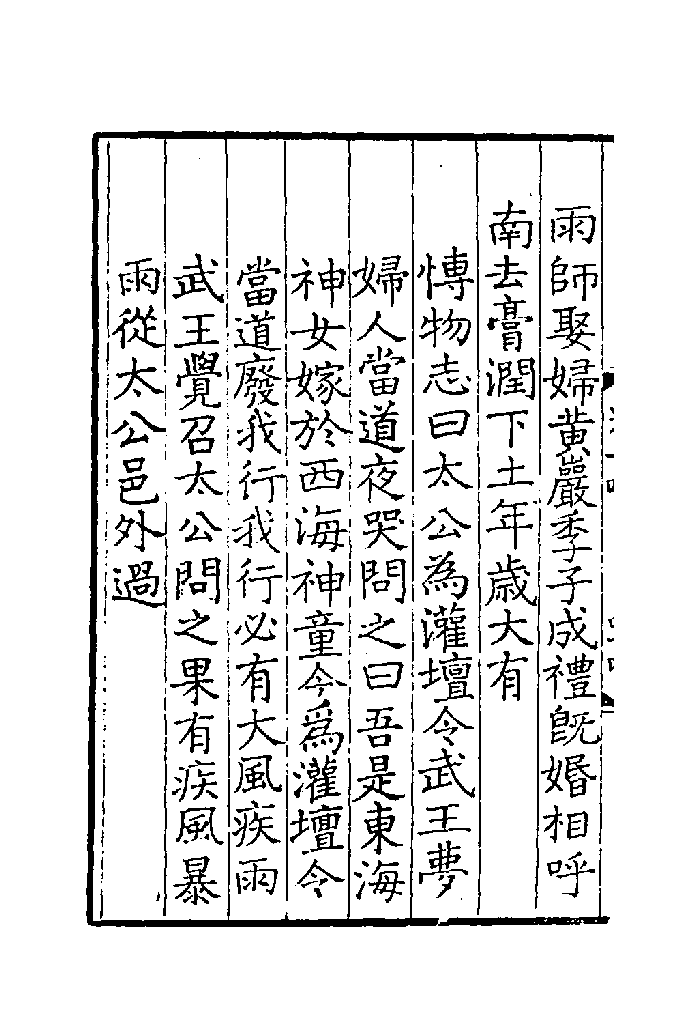 雨師娶婦黄巖季子成禮旣婚相呼
南去膏潤下土年歳大有
愽物志曰太公為灌壇令武王夢
婦人當道夜哭問之曰吾是東海
神女嫁於西海神童今爲灌壇令
當道廢我行我行必有大風疾雨
武王覺召太公問之果有疾風暴
雨從太公邑外過